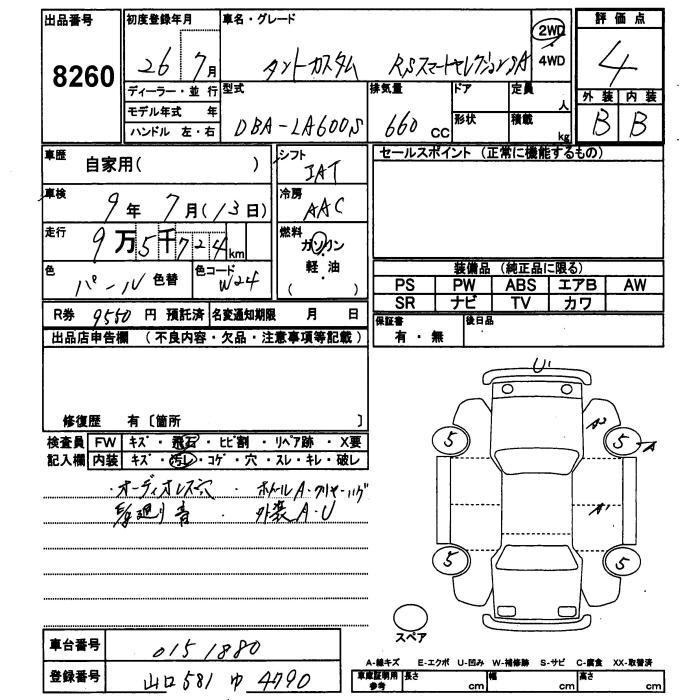 出品番号 初度登録年月 車名・グレード 評価点
8260 26 7月 タントカスタム RSスマートセレクションSA 2WD 4WD 4
ディーラー・並行 型式 排気量 ドア 定員 人 外装 内装
モデル年式 年 形状 積載 kg B B
ハンドル 左・右 DBA-LA600S 660 CC
車歴 自家用( ) シフト IAT セールスポイント (正常に機能するもの)
車検 9年 7月(13日) 冷房 AAC
走行 9万5千724km 燃料 ガソリン・軽油 ( )
色 パール 色替 色コード W24
装備品 (純正品に限る)
PS PW ABS エアB AW
SR ナビ TV カワ
R券 9550円 預託済 名変通知期限 月 日 保証書 有・無 後日品
出品店申告欄 (不良内容・欠品・注意事項等記載)
修復歴 有〔箇所 〕
検査員 FW キズ・飛石・ヒビ割・リペア跡・X要
記入欄 内装 キズ・汚レ・コゲ・穴・スレ・キレ・破レ
・オーディオレス穴 ・ホイールA・クリヤーハゲ
廻り音 ・外装A・U
U1
A2
5 5 A
A1
5 5
スペア
車台番号 0151880
登録番号 山口581 ゆ 4790
A-線キズ E-エクボ U-凹み W-補修跡 S-サビ C-腐食 XX-取替済
車庫証明用参考 長さ cm 幅 cm 高さ cm